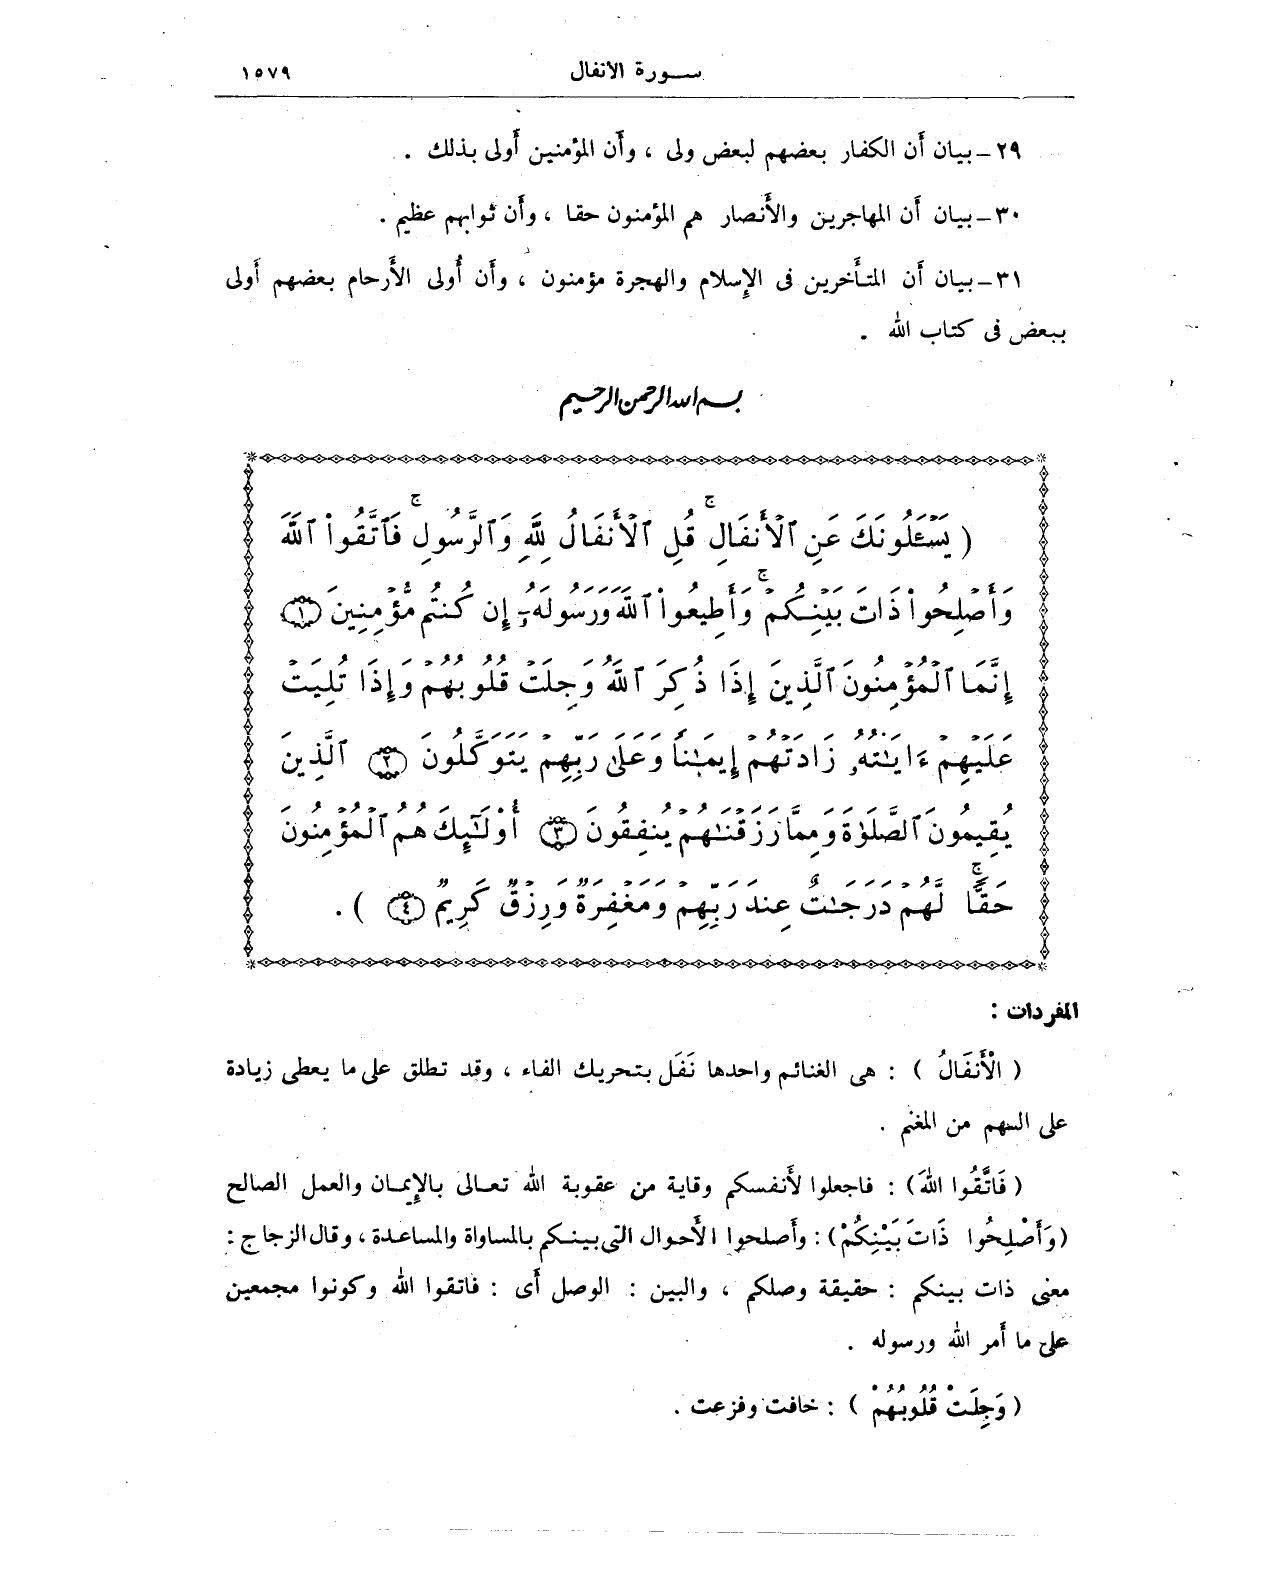 سورة الانفال ١٥٧٩
٢٩ – بيان أن الكفار بعضهم لبعض ولى ، وأن المؤمنين أولى بذلك .
٣٠ – بيان أن المهاجرين والأنصار هم المؤمنون حقا ، وأن ثوابهم عظيم .
٣١ – بيان أن المتأخرين فى الإسلام والهجرة مؤمنون ، وأن أُولى الأرحام بعضهم أولى
ببعض فى كتاب الله .
بسم الله الرحمن الرحيم
( يَسْـَٔلُونَكَ عَنِ ٱلْأَنفَالِ ۖ قُلِ ٱلْأَنفَالُ لِلَّهِ وَٱلرَّسُولِ ۚ فَٱتَّقُوا۟ ٱللَّهَ
وَأَصْلِحُوا۟ ذَاتَ بَيْنِكُمْ ۚ وَأَطِيعُوا۟ ٱللَّهَ وَرَسُولَهُۥٓ إِن كُنتُم مُّؤْمِنِينَ (١)
إِنَّمَا ٱلْمُؤْمِنُونَ ٱلَّذِينَ إِذَا ذُكِرَ ٱللَّهُ وَجِلَتْ قُلُوبُهُمْ وَإِذَا تُلِيَتْ
عَلَيْهِمْ ءَايَـٰتُهُۥ زَادَتْهُمْ إِيمَـٰنًا وَعَلَىٰ رَبِّهِمْ يَتَوَكَّلُونَ (٢) ٱلَّذِينَ
يُقِيمُونَ ٱلصَّلَوٰةَ وَمِمَّا رَزَقْنَـٰهُمْ يُنفِقُونَ (٣) أُو۟لَـٰٓئِكَ هُمُ ٱلْمُؤْمِنُونَ
حَقًّا ۚ لَّهُمْ دَرَجَـٰتٌ عِندَ رَبِّهِمْ وَمَغْفِرَةٌ وَرِزْقٌ كَرِيمٌ (٤) ) .
المفردات :
( الْأَنفَالُ ) : هى الغنائم واحدها نَفَل بتحريك الفاء ، وقد تطلق على ما يعطى زيادة
على السهم من المغنم .
( فَاتَّقُوا اللهَ ) : فاجعلوا لأنفسكم وقاية من عقوبة الله تعالى بالإيمان والعمل الصالح
( وَأَصْلِحُوا ذَاتَ بَيْنِكُمْ ) : وأصلحوا الأحوال التى بينكم بالمساواة والمساعدة ، وقال الزجاج :
معنى ذات بينكم : حقيقة وصلكم ، والبين : الوصل أى : فاتقوا الله وكونوا مجمعين
على ما أمر الله ورسوله .
( وَجِلَتْ قُلُوبُهُمْ ) : خافت وفزعت .